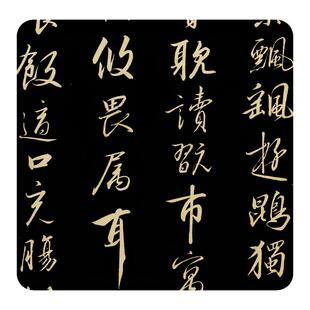 飄颻遊鵾獨
耽讀翫市寓
攸畏属耳
飯適口充腸